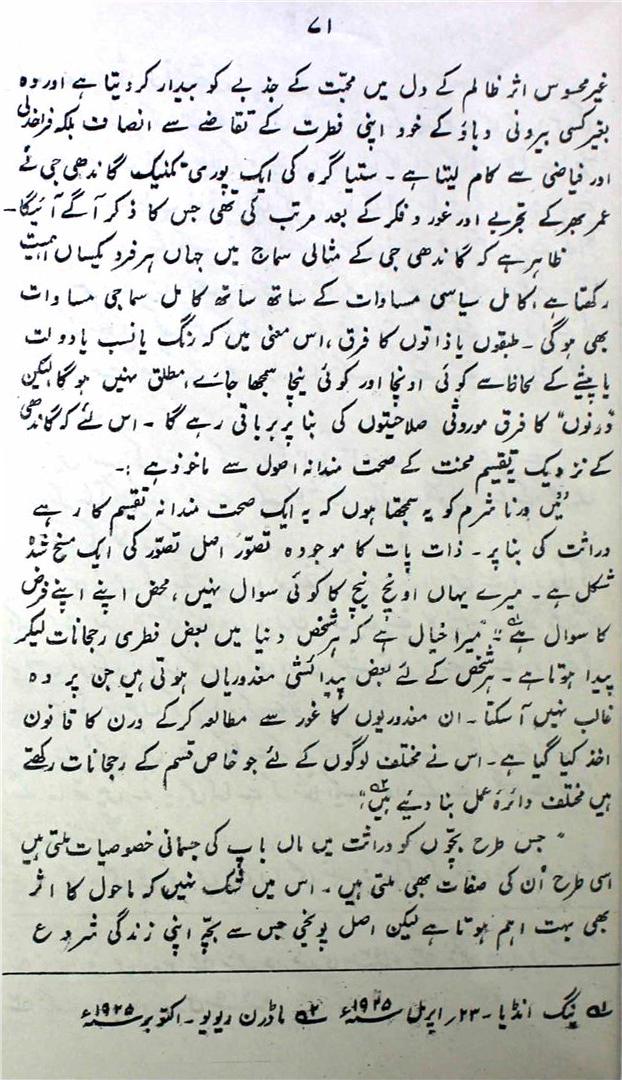 ۷۱
غیر محسوس اثر ظالم کے دل میں محبّت کے جذبے کو بیدار کر دیتا ہے اور وہ
بغیر کسی بیرونی دباؤ کے خود اپنی فطرت کے تقاضے سے انصاف بلکہ فراخدلی
اور فیاضی سے کام لیتا ہے۔ ستیاگرہ کی ایک پوری تکنیک گاندھی جی نے
عمر بھر کے تجربے اور غور و فکر کے بعد مرتب کی تھی جس کا ذکر آگے آئیگا۔
ظاہر ہے کہ گاندھی جی کے مثالی سماج میں جہاں ہر فرد یکساں اہمیت
رکھتا ہے، کامل سیاسی مساوات کے ساتھ ساتھ کامل سماجی مساوات
بھی ہوگی۔ طبقوں یا ذاتوں کا فرق، اس معنی میں کہ رنگ یا نسب یا دولت
یا پیشے کے لحاظ سے کوئی اونچا اور کوئی نیچا سمجھا جائے، مطلق نہیں ہوگا لیکن
"ورنوں" کا فرق موروثی صلاحیتوں کی بنا پر باقی رہے گا۔ اس لئے کہ گاندھی
کے نزدیک یہ تقسیم محنت کے صحت مندانہ اصول سے ماخوذ ہے :۔
"میں ورنا شرم کو یہ سمجھتا ہوں کہ یہ ایک صحت مندانہ تقسیم کار ہے
وراثت کی بنا پر۔ ذات پات کا موجودہ تصوّر اصل تصوّر کی ایک مسخ شدہ
شکل ہے۔ میرے یہاں اونچ نیچ کا کوئی سوال نہیں، محض اپنے اپنے فرض
کا سوال ہے"۱؎ "میرا خیال ہے کہ ہر شخص دنیا میں بعض فطری رجحانات لیکر
پیدا ہوتا ہے۔ ہر شخص کے لئے بعض پیدائشی معذوریاں ہوتی ہیں جن پر وہ
غالب نہیں آ سکتا۔ ان معذوریوں کا غور سے مطالعہ کر کے ورن کا قانون
اخذ کیا گیا ہے۔ اس نے مختلف لوگوں کے لئے جو خاص قسم کے رجحانات رکھتے
ہیں مختلف دائرۂ عمل بنا دیئے ہیں"۲؎
"جس طرح بچّوں کو وراثت میں ماں باپ کی جسمانی خصوصیات ملتی ہیں
اسی طرح اُن کی صفات بھی ملتی ہیں۔ اس میں شک نہیں کہ ماحول کا اثر
بھی بہت اہم ہوتا ہے لیکن اصل پونجی جس سے بچّہ اپنی زندگی شروع
۱؎ ینگ انڈیا۔ ۲۳؍ اپریل ۱۹۲۵ء ۲؎ ماڈرن ریویو۔ اکتوبر ۱۹۳۵ء